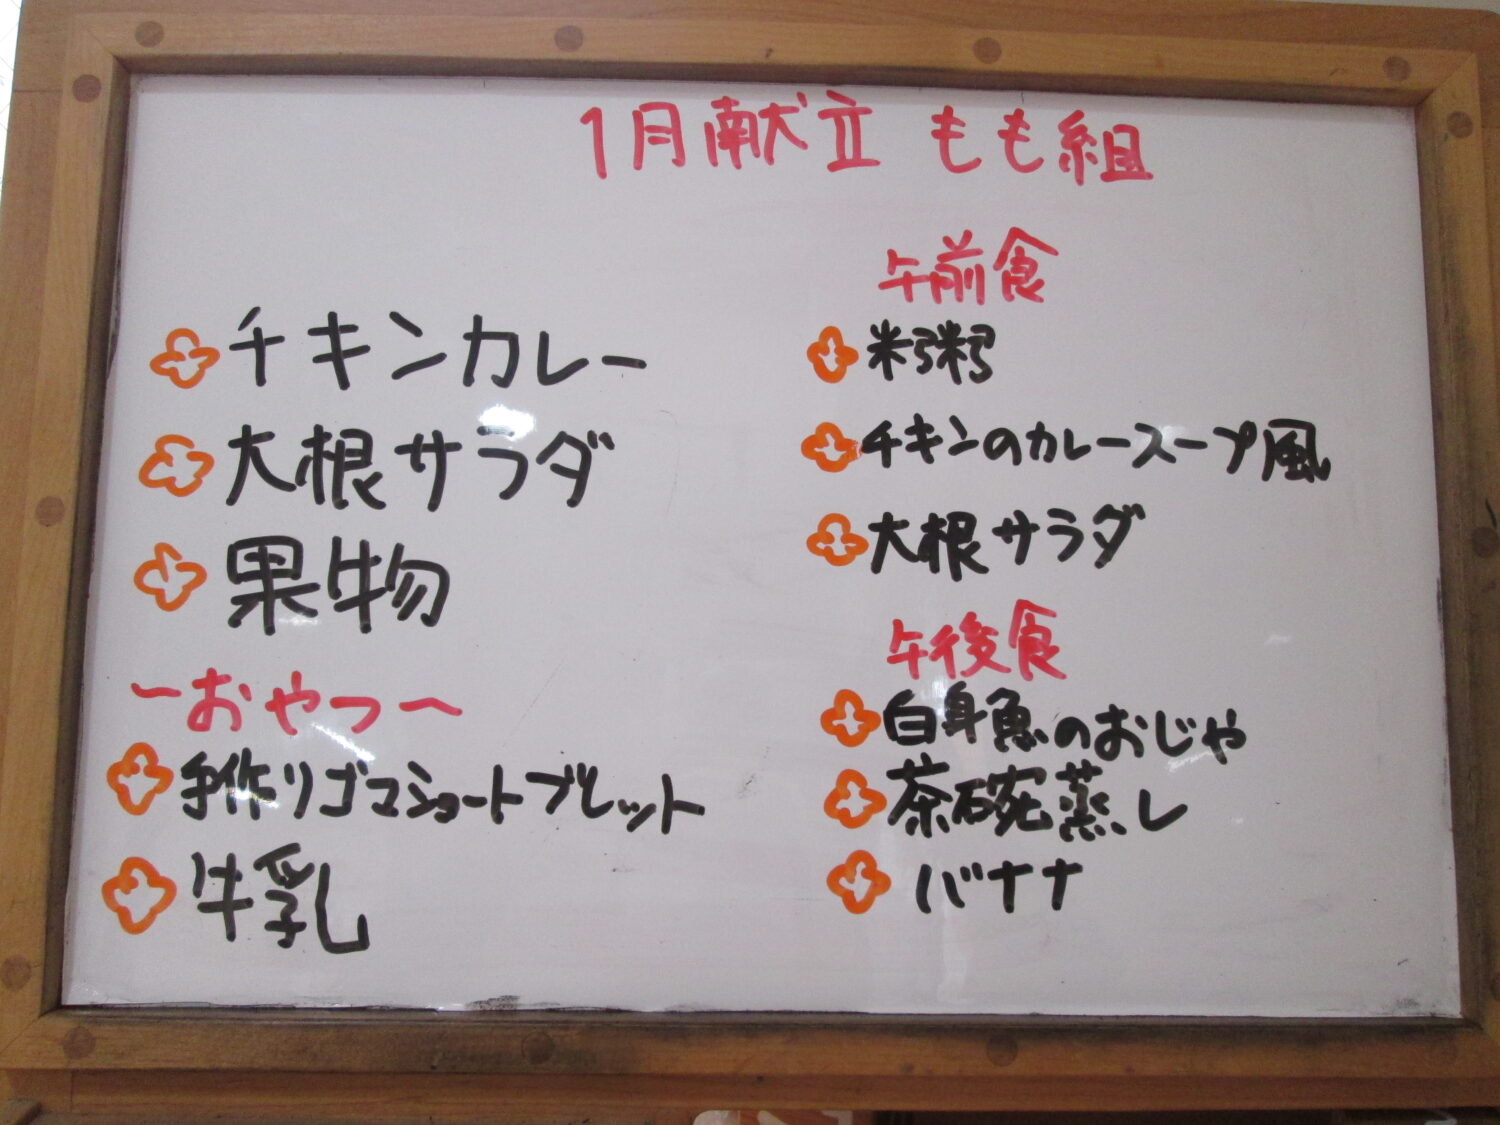 1月献立 もも組
チキンカレー
大根サラダ
果物
~おやつ~
手作りゴマショートブレット
牛乳
午前食
米粥
チキンのカレースープ風
大根サラダ
午後食
白身魚のおじや
茶碗蒸し
バナナ